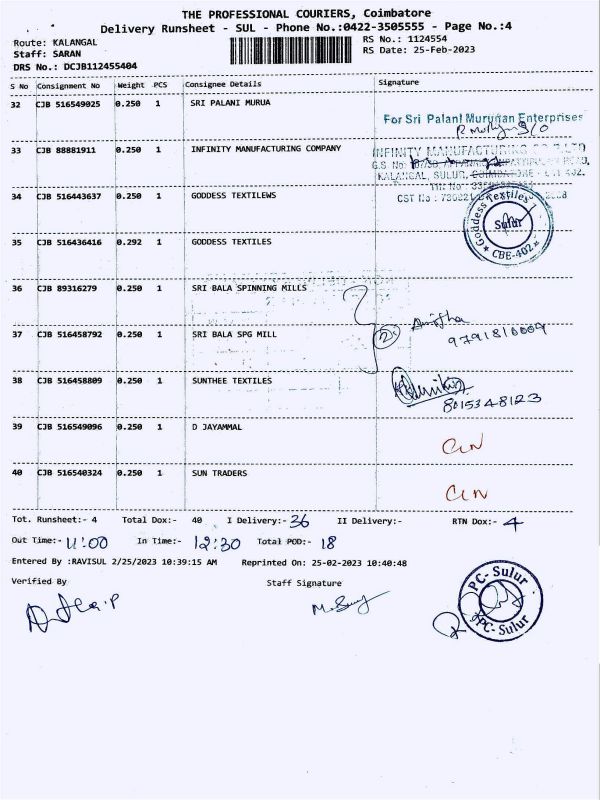 THE PROFESSIONAL COURIERS, Coimbatore
Delivery Runsheet - SUL - Phone No.:0422-3505555 - Page No.:4
Route: KALANGAL
RS No.: 1124554
Staff: SARAN
RS Date: 25-Feb-2023
DRS No.: DCJB112455404
S No Consignment No Weight PCS Consignee Details Signature
32 CJB 516549025 0.250 1 SRI PALANI MURUA
For Sri Palani Murugan Enterprises
33 CJB 88881911 0.250 1 INFINITY MANUFACTURING COMPANY
INFINITY MANUFACTURING CO P LTD
KALANGAL, SULUR, COIMBATORE - 641 402.
34 CJB 516443637 0.250 1 GODDESS TEXTILEWS
CST No :
Goddess Textiles
Sulur
CBE-402
35 CJB 516436416 0.292 1 GODDESS TEXTILES
36 CJB 89316279 0.250 1 SRI BALA SPINNING MILLS
37 CJB 516458792 0.250 1 SRI BALA SPG MILL
2
38 CJB 516458809 0.250 1 SUNTHEE TEXTILES
8015348123
39 CJB 516549096 0.250 1 D JAYAMMAL
40 CJB 516540324 0.250 1 SUN TRADERS
Tot. Runsheet:- 4 Total Dox:- 40 I Delivery:- 36 II Delivery:- RTN Dox:- 4
Out Time:- 11:00 In Time:- 12:30 Total POD:- 18
Entered By :RAVISUL 2/25/2023 10:39:15 AM Reprinted On: 25-02-2023 10:40:48
Verified By Staff Signature
PC- Sulur
PC- Sulur